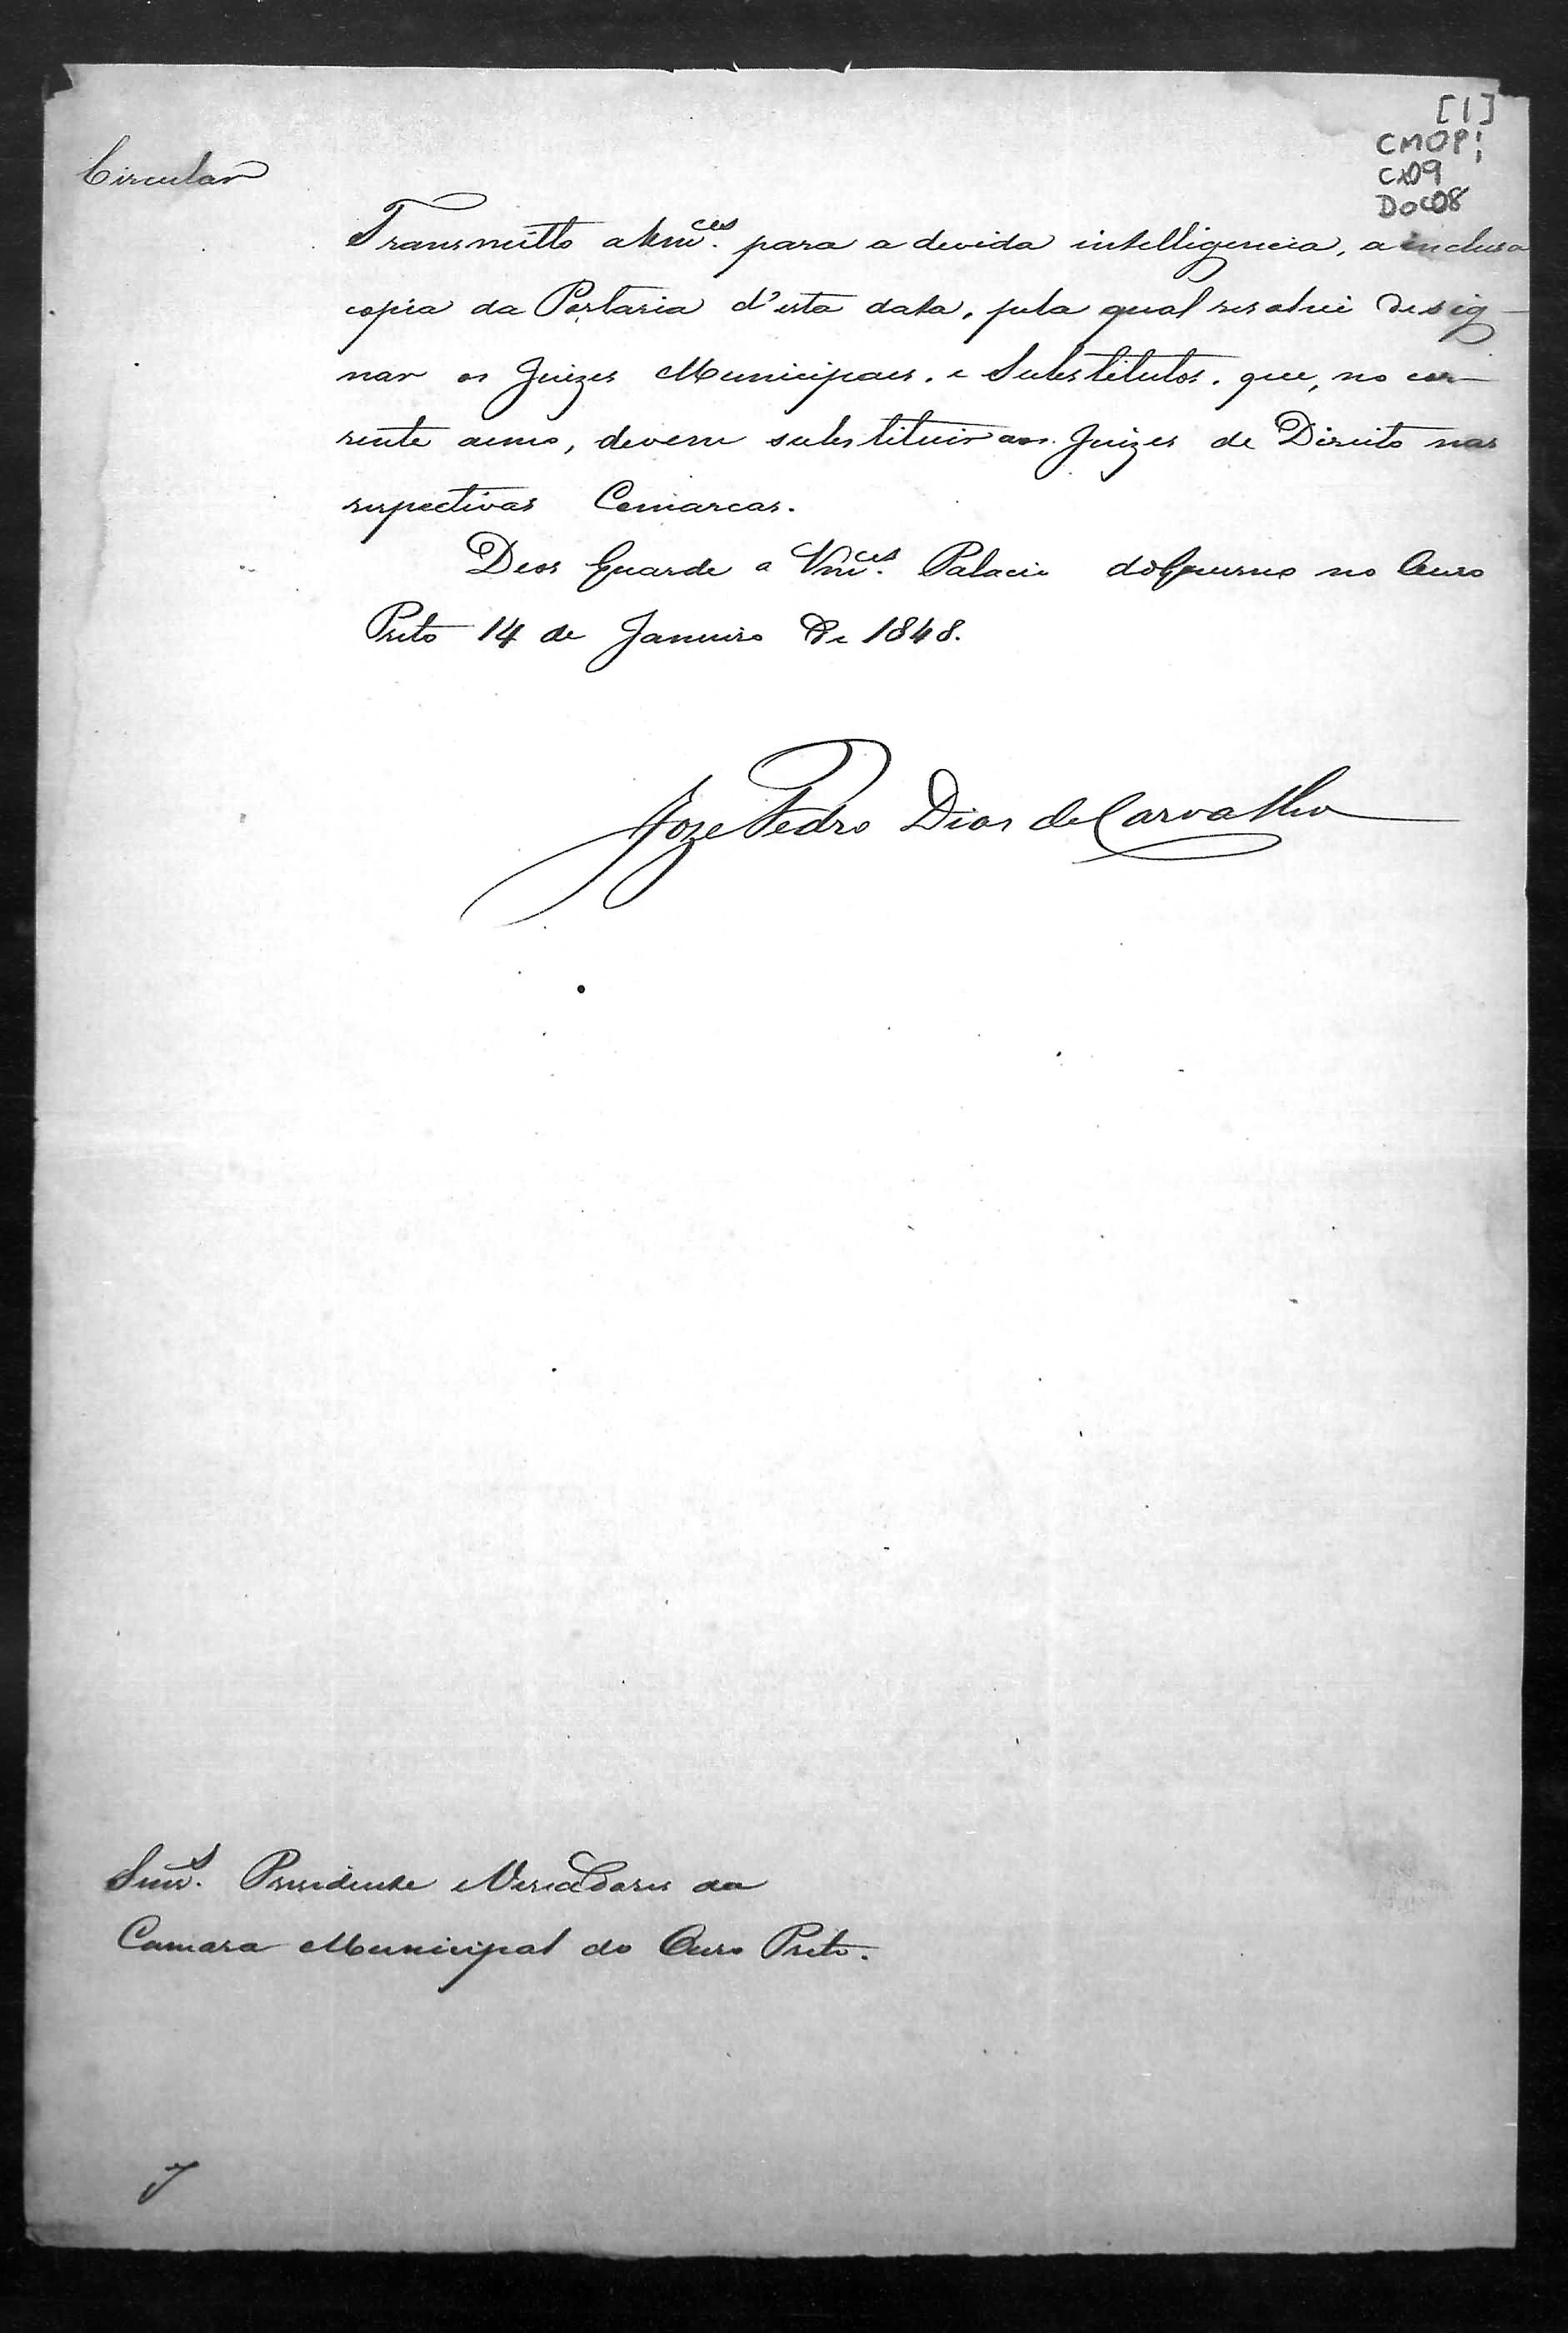 [1]
CMOP;
CX09
DOC08
Circular
Transmitto a Vm.ces para a devida intelligencia, a inclusa
copia da Portaria d'esta data, pela qual resolvi desig-
nar os Juizes Municipaes, e Substitutos, que, no cor-
rente anno, devem substituir aos Juizes de Direito nas
respectivas Comarcas.
Deos Guarde a Vm.ces Palacio do Governo no Ouro
Preto 14 de Janeiro de 1848.
Joze Pedro Dias de Carvalho
Snr.s Presidente e Vereadores da
Camara Municipal do Ouro Preto.